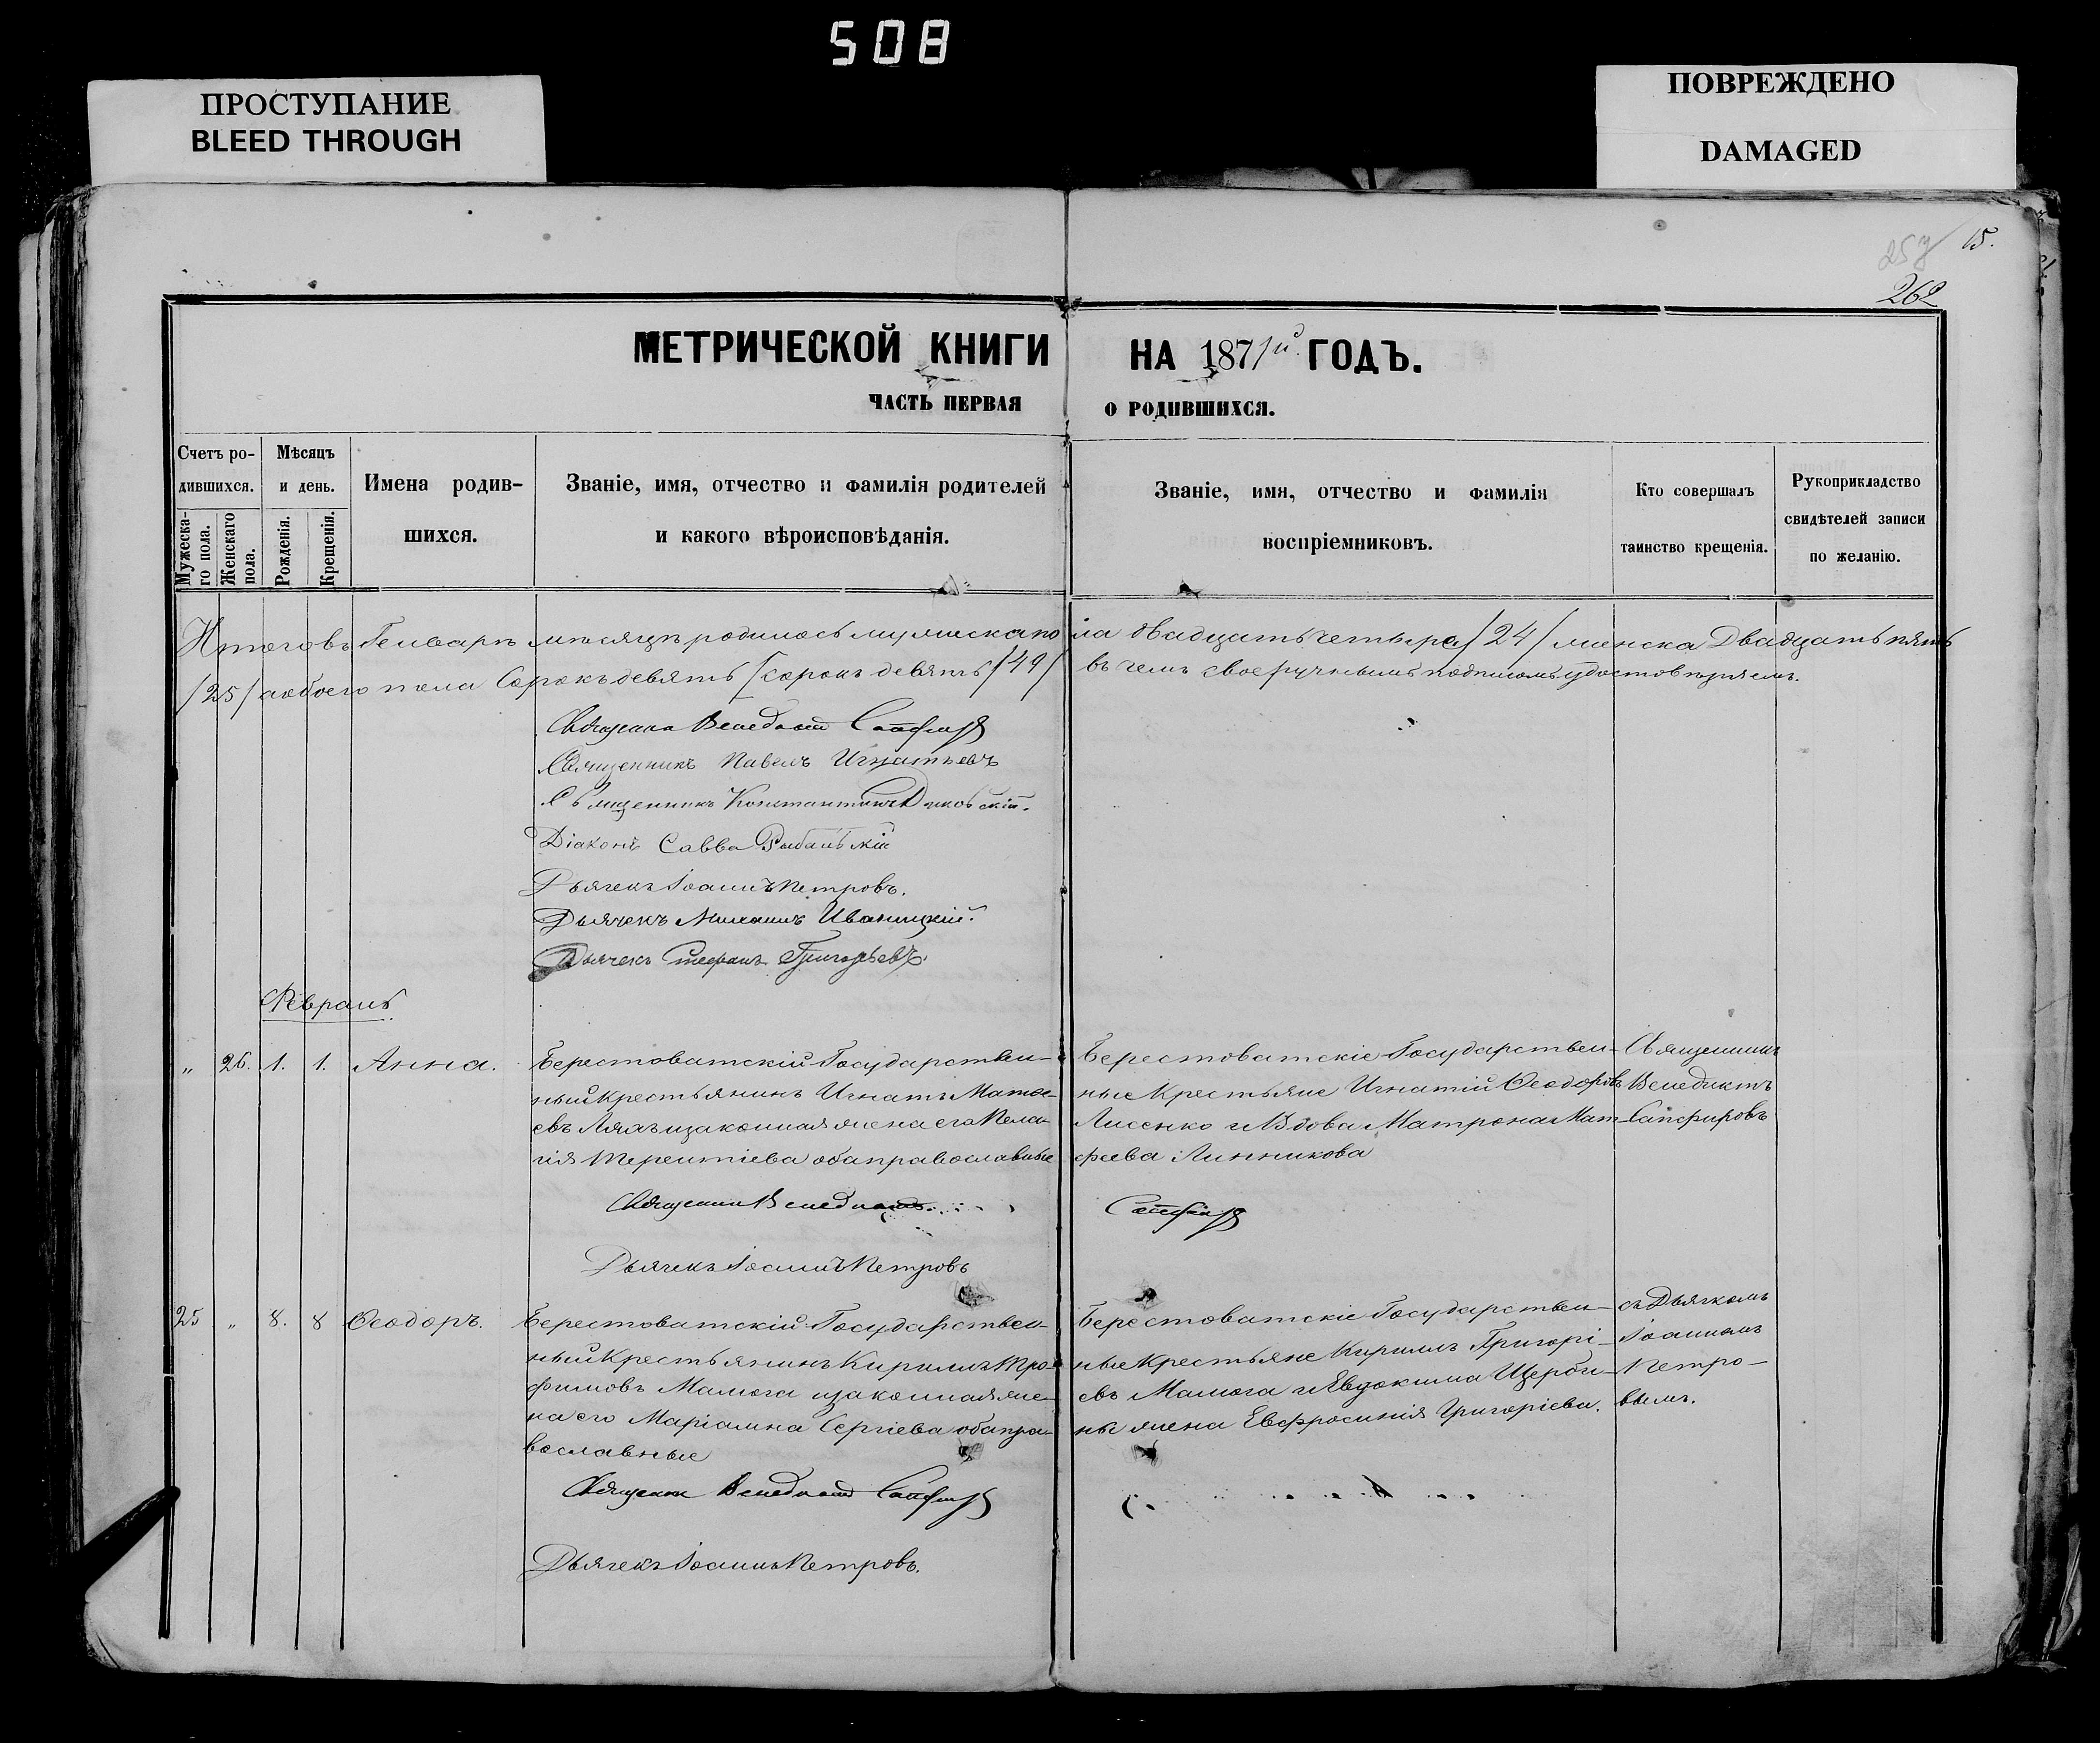 508
ПРОСТУПАНИЕ
BLEED THROUGH
ПОВРЕЖДЕНО
DAMAGED
15.
262
МЕТРИЧЕСКОЙ КНИГИ НА 1871й ГОДЪ.
ЧАСТЬ ПЕРВАЯ О РОДИВШИХСЯ.
Счетъ ро-
дившихся.
Мужеска-
го пола.
Женскаго
пола.
Мѣсяцъ
и день.
Рожденія.
Крещенія.
Имена родив-
шихся.
Званіе, имя, отчество и фамилія родителей
и какого вѣроисповѣданія.
Званіе, имя, отчество и фамилія
воспріемниковъ.
Кто совершалъ
таинство крещенія.
Рукоприкладство
свидѣтелей записи
по желанію.
Итого въ Генварѣ мѣсяцѣ родилось мужеска пола двадцать четыре /24/ женска Двадцать пять
/25/ обоего пола Сорокъ девять /сорокъ девять /49/ въ чемъ своеручнымъ подписомъ удостовѣряемъ.
Священникъ Венедиктъ Сапфировъ
Священникъ Павелъ Игнатьевъ
Священникъ Константинъ
Діаконъ Савва
Дьячекъ Іоаннъ Петровъ.
Дьячекъ Иваницкій.
Дьячекъ Стефанъ Григорьевъ.
Февраль
„ 26. 1. 1. Анна.
Берестоватскій Государствен-
ный Крестьянинъ Игнатъ Матѳе-
евъ Ляхъ изаконная жена его Пела-
гія Терентіева оба православные
Берестоватскіе Государствен-
ные Крестьяне Игнатій Ѳеодоровъ
Лисенко и Вдова Матрона Мат-
феева Линникова
Священникъ
Венедиктъ
Сапфировъ
Священникъ Венедиктъ Сапфировъ
Дьячекъ Іоаннъ Петровъ
25 „ 8. 8 Ѳеодоръ.
Берестоватскій Государствен-
ный Крестьянинъ Кириллъ Тро-
фимовъ Малюга изаконная же-
на его Маріамна Сергіева оба пра-
вославные
Берестоватскіе Государствен-
ные Крестьяне Кириллъ Григорі-
евъ Малюга и Евдокима Щерби-
ны жена Евфросинія Григоріева.
съ Дьячкомъ
Іоанномъ
Петро-
вымъ.
Священникъ Венедиктъ Сапфировъ
Дьячекъ Іоаннъ Петровъ.